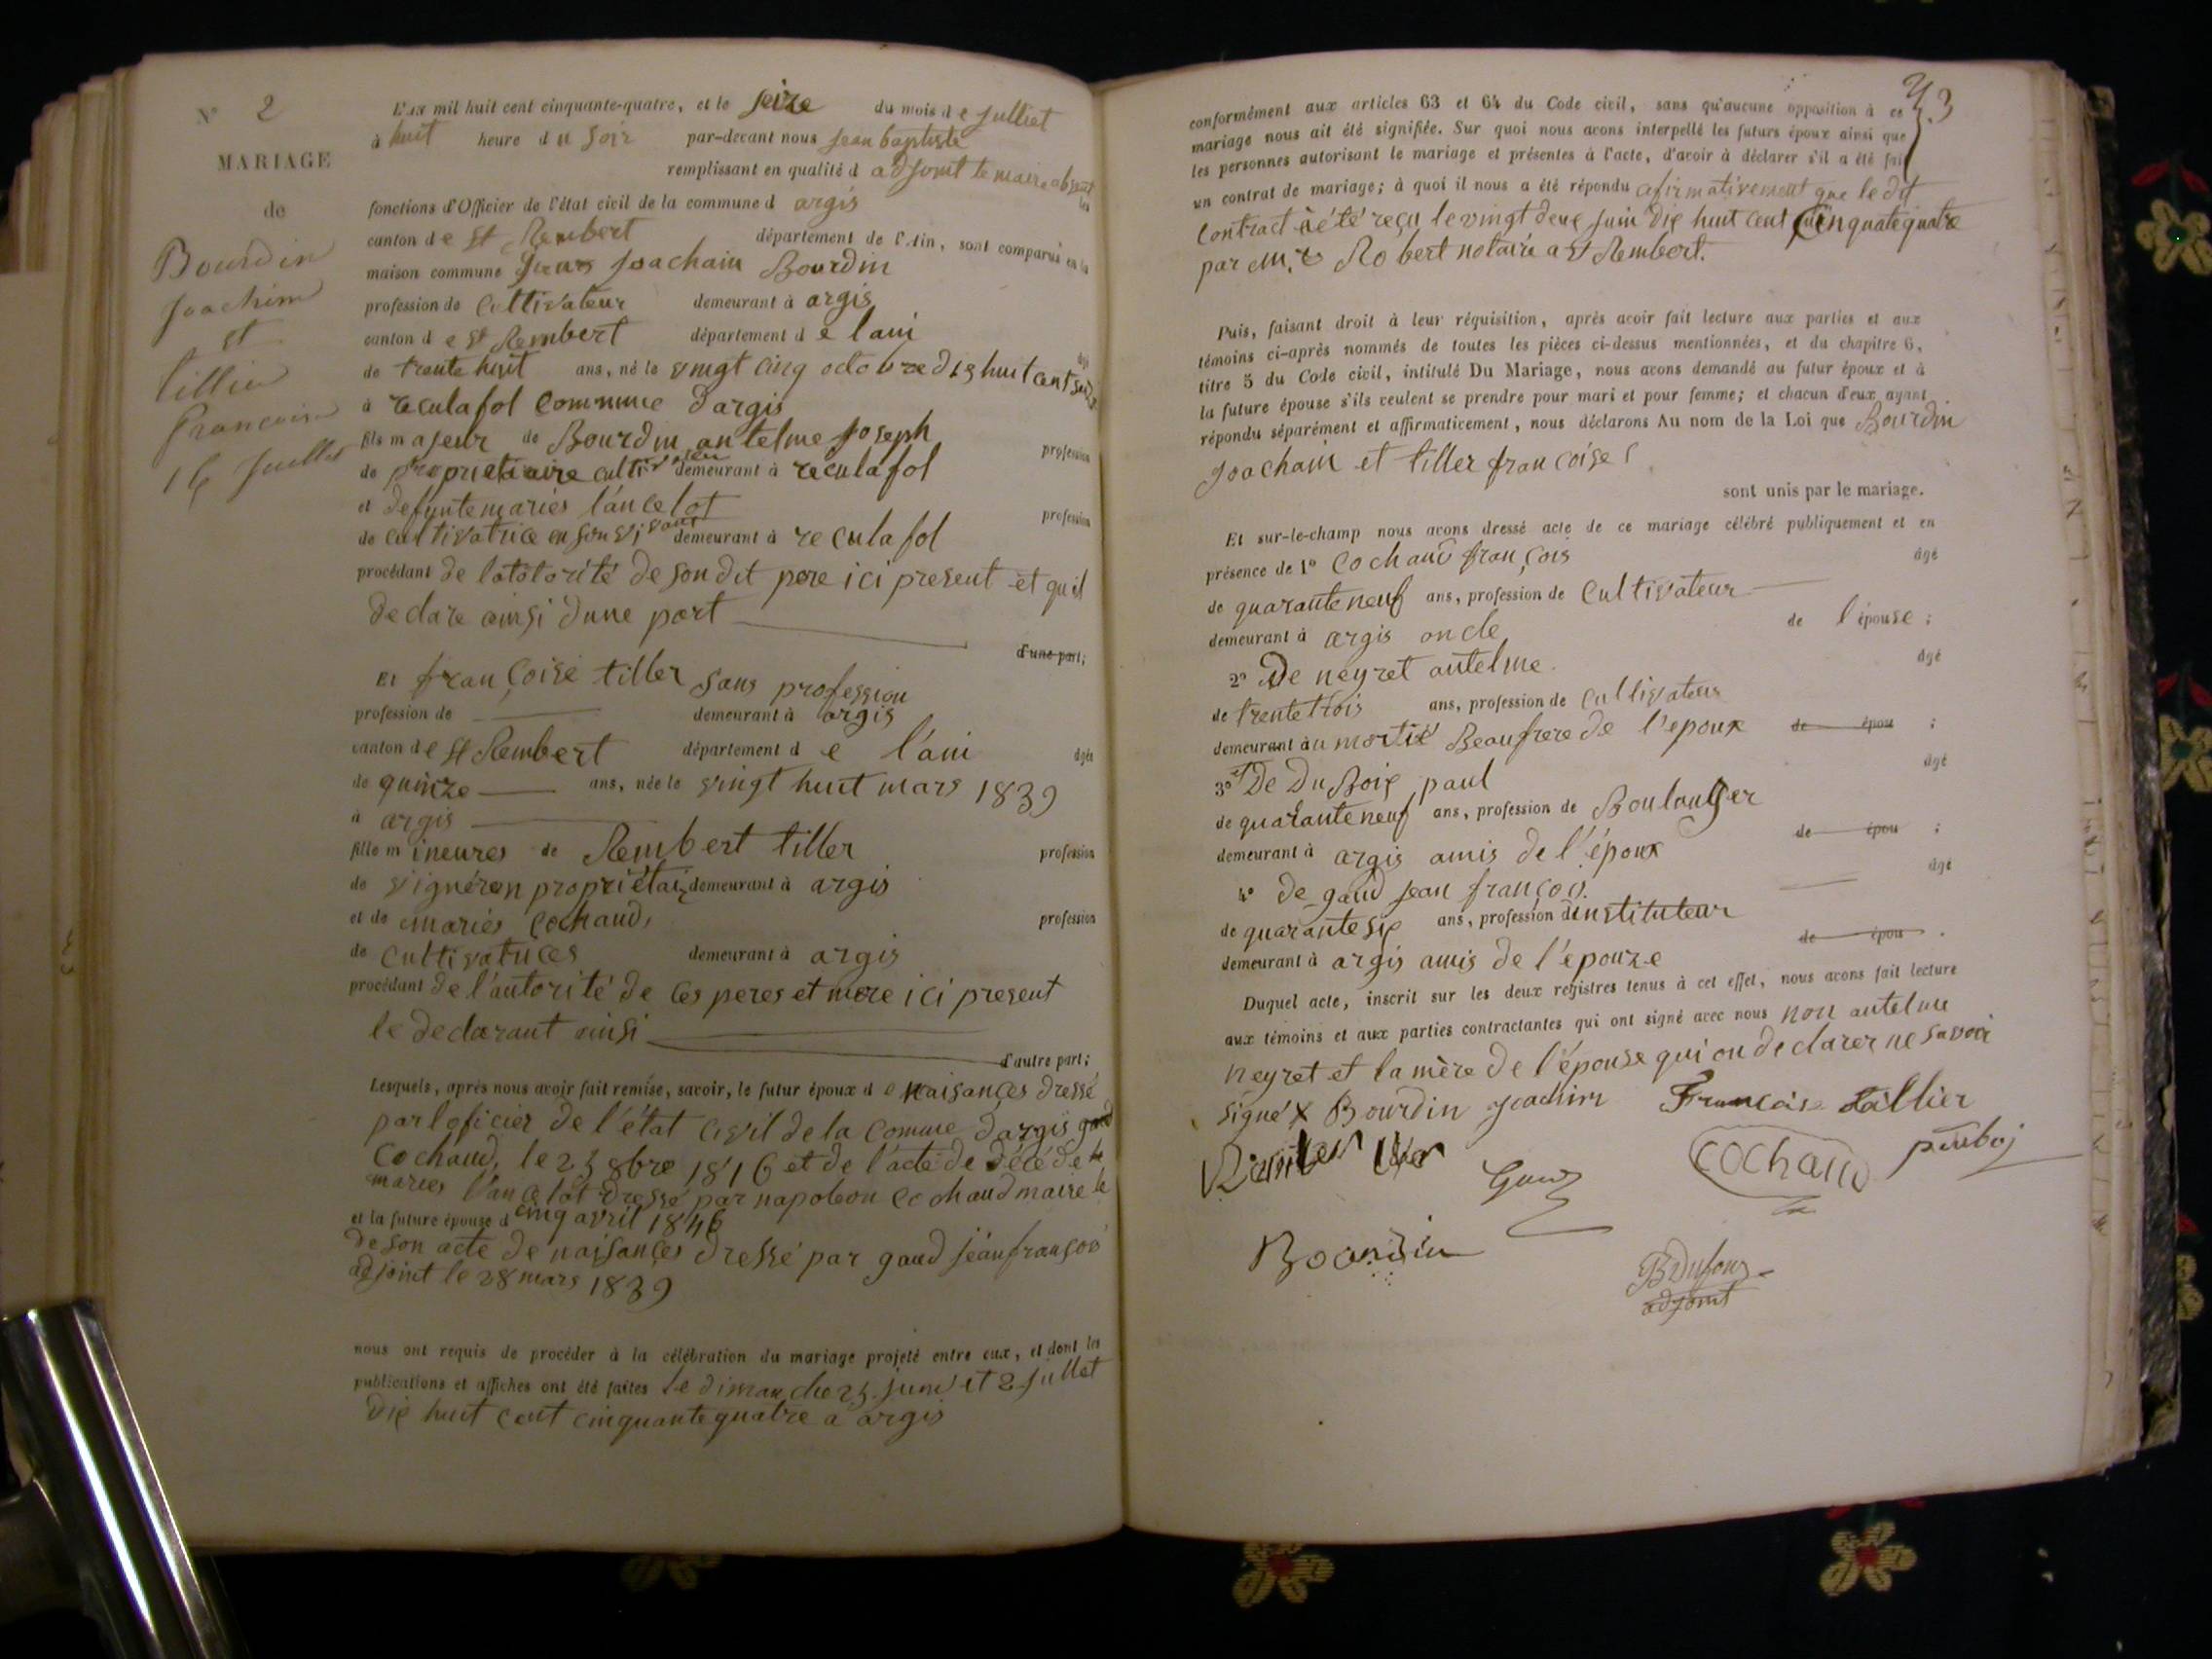 N° 2
MARIAGE
de
Bourdin
Joachim
et
tillier
francoise
16 Juillet
L'an mil huit cent cinquante-quatre, et le seize du mois de Julliet
à huit heure du soir par-devant nous jean baptiste
remplissant en qualité d adjoint le maire absent les
fonctions d'Officier de l'état civil de la commune d argis
canton de st Rembert département de l'Ain, sont comparus en la
maison commune Joachain Bourdin
profession de cultivateur demeurant à argis
canton de st Rembert département de lain
âgé
de trente huit ans, né le vingt cinq octobre dix huit cent seize
à reculafol commune d'argis
fils majeur de Bourdin antelme joseph profession
de proprietiaire cultivateur demeurant à reculafol
et defunte maries lancelot profession
de cultivatrice en son vivant demeurant à reculafol
procédant de latotorité de son dit pere ici present et quil
declare ainsi dune part
d'une part;
Et françoise tiller sans profession
profession de demeurant à argis
canton de st Rembert département de l'ain âgée
de quinze ans, née le vingt huit mars 1839
à argis
fille mineures de Rembert tiller profession
de vignéron propriétair demeurant à argis
et de maries cochaud, profession
de cultivatrices demeurant à argis
procédant de l'autorité de ces peres et mere ici present
le declarant ainsi
d'autre part;
Lesquels, après nous avoir fait remise, savoir, le futur époux de naisances dressé
par loficier de l'état civil de la comune d'argis
cochaud, le 25 8bre 1816 et de l'acte de décé de
maries lancelot dressé par napoleon cochaud maire le
et la future épouse d cinq avril 1846
de son acte de naisances dressé par gaud jéan françois
adjoint le 28 mars 1839
nous ont requis de procéder à la célébration du mariage projeté entre eux, et dont les
publications et affiches ont été faites le dimanche 25 juin et 2 jullet
dix huit cent cinquante quatre a argis
conformément aux articles 63 et 64 du Code civil, sans qu'aucune opposition à ce
mariage nous ait été signifiée. Sur quoi nous avons interpellé les futurs époux ainsi que
les personnes autorisant le mariage et présentes à l'acte, d'avoir à déclarer s'il a été fait
un contrat de mariage; à quoi il nous a été répondu afirmativement que le dit
contract à été reçu le vingt deux juin dix huit cent cinquate quatre
par Robert notaire a st Rembert.
Puis, faisant droit à leur réquisition, après avoir fait lecture aux parties et aux
témoins ci-après nommés de toutes les pièces ci-dessus mentionnées, et du chapitre 6,
titre 5 du Code civil, intitulé Du Mariage, nous avons demandé au futur époux et à
la future épouse s'ils veulent se prendre pour mari et pour femme; et chacun d'eux ayant
répondu séparément et affirmativement, nous déclarons Au nom de la Loi que Bourdin
joachain et tiller françoise
sont unis par le mariage.
Et sur-le-champ nous avons dressé acte de ce mariage célébré publiquement et en
présence de 1° Cochaud françois âgé
de quarante neuf ans, profession de cultivateur
demeurant à argis oncle de l'épouse ;
2° De neyret antelme. âgé
de trente trois ans, profession de cultivateur
demeurant à Beaufrere de l'epoux de épou ;
3° et De Du Boix paul âgé
de quarante neuf ans, profession de Boulanger
demeurant à argis amis de l'époux de épou ;
4° de gaud jean françois. âgé
de quarante six ans, profession d'instituteur
demeurant à argis amis de l'épouze de épou .
Duquel acte, inscrit sur les deux registres tenus à cet effet, nous avons fait lecture
aux témoins et aux parties contractantes qui ont signé avec nous non antelme
neyret et la mère de l'épouse qui on declarer ne savoir
signé Bourdin joachim Francoise tillier
Cochaud
Gaud
Bourdin
BDufour
adjoint